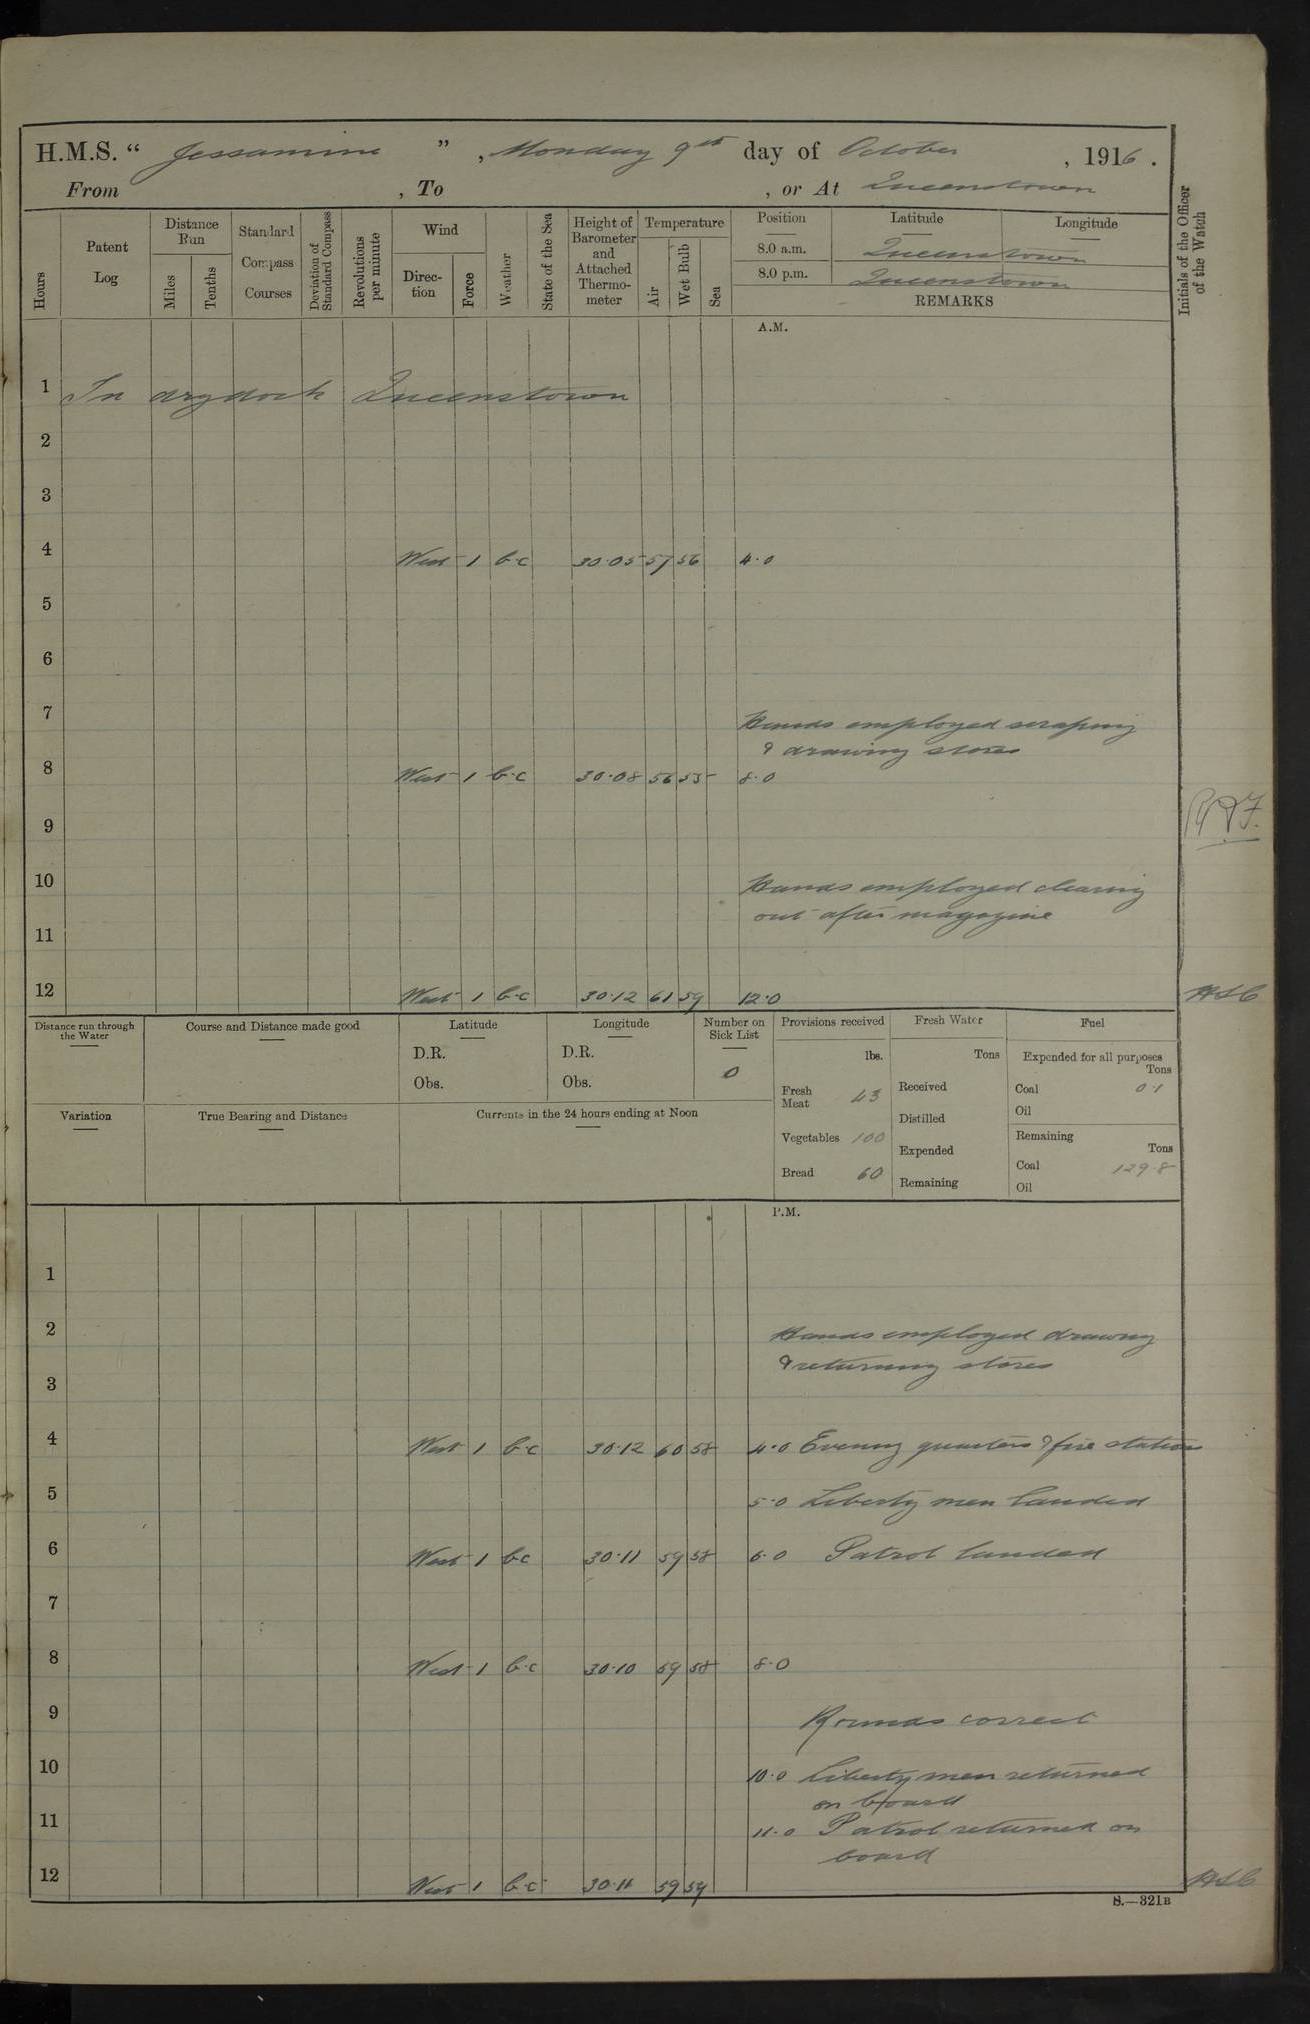 H.M.S. “ Jessamine ” , Monday 9th day of October , 1916 .
From , To , or At Queenstown
Hours
Patent Log
Distance Run
Miles
Tenths
Standard Compass Courses
Deviation of Standard Compass
Revolutions per minute
Wind
Direc-tion
Force
Weather
State of the Sea
Height of Barometer and Attached Thermo-meter
Temperature
Air
Wet Bulb
Sea
Position Latitude Longitude
8.0 a.m. Queenstown
8.0 p.m. Queenstown
REMARKS
Initials of the Officer of the Watch
A.M.
1 In drydock Queenstown
2
3
4 West 1 b.c 30.05 57 56 4.0
5
6
7 Hands employed scraping
& drawing stores
8 West 1 b.c 30.08 56 55 8.0
9
10 Hands employed clearing
out after magazine
11
12 West 1 b.c 30.12 61 59 12.0
Distance run through the Water
Course and Distance made good
Latitude
D.R.
Obs.
Longitude
D.R.
Obs.
Number on Sick List
0
Variation
True Bearing and Distance
Currents in the 24 hours ending at Noon
Provisions received
lbs.
Fresh Meat 43
Vegetables 100
Bread 60
Fresh Water
Tons
Received
Distilled
Expended
Remaining
Fuel
Expended for all purposes
Tons
Coal 0.1
Oil
Remaining
Tons
Coal 129.8
Oil
P.M.
1
2 Hands employed drawing
& returning stores
3
4 West 1 b.c 30.12 60 58 4.0 Evening quarters & fire stations
5 5.0 Liberty men landed
6 West 1 b.c 30.11 59 58 6.0 Patrol landed
7
8 West 1 b.c 30.10 59 58 8.0
9 Rounds correct
10 10.0 Liberty men returned
on board
11 11.0 Patrol returned on
board
12 West 1 b.c 30.11 59 59
S.—321B